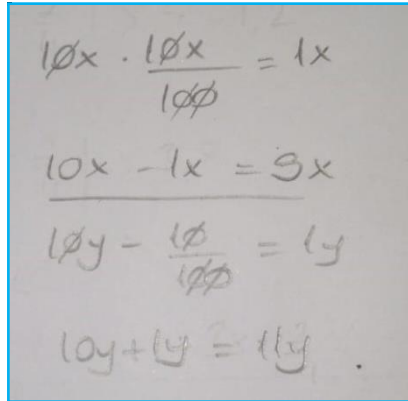 10x · 10x/100 = 1x
10x - 1x = 9x
10y - 10/100 = 1y
10y + 1y = 11y .